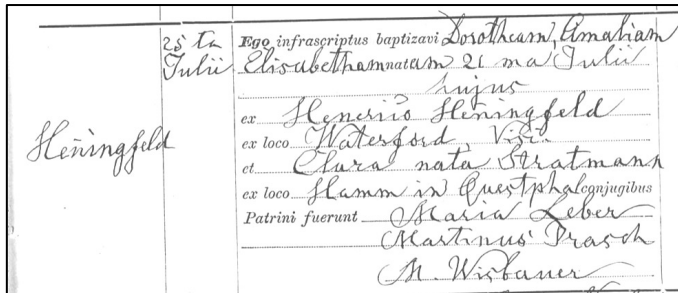 25 ta Ego infrascriptus baptizavi Dorotheam, Amaliam
Julii Elisabetham natam 21 ma Julii
hujus
ex Henerico Heñingfeld
Heñingfeld
ex loco Waterford, Visc.
et Clara nata Stratmann
ex loco Hamm in Questphal conjugibus
Patrini fuerunt Maria Leber
Martinus Prasch
M. Wisbauer